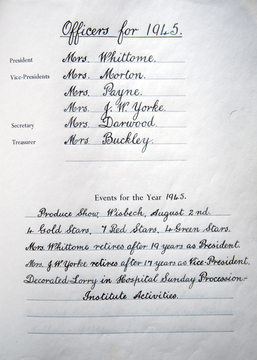 Officers for 1945.
President Mrs. Whittome.
Vice-Presidents Mrs. Morton.
Mrs. Payne.
Mrs. J. W. Yorke.
Secretary Mrs. Darwood.
Treasurer Mrs Buckley.
Events for the Year 1945.
Produce Show, Wisbech, August 2nd.
4 Gold Stars, 7 Red Stars, 4 Green Stars.
Mrs. Whittome retires after 19 years as President.
Mrs. J. W. Yorke retires after 17 years as Vice-President.
Decorated Lorry in Hospital Sunday Procession-
Institute Activities.